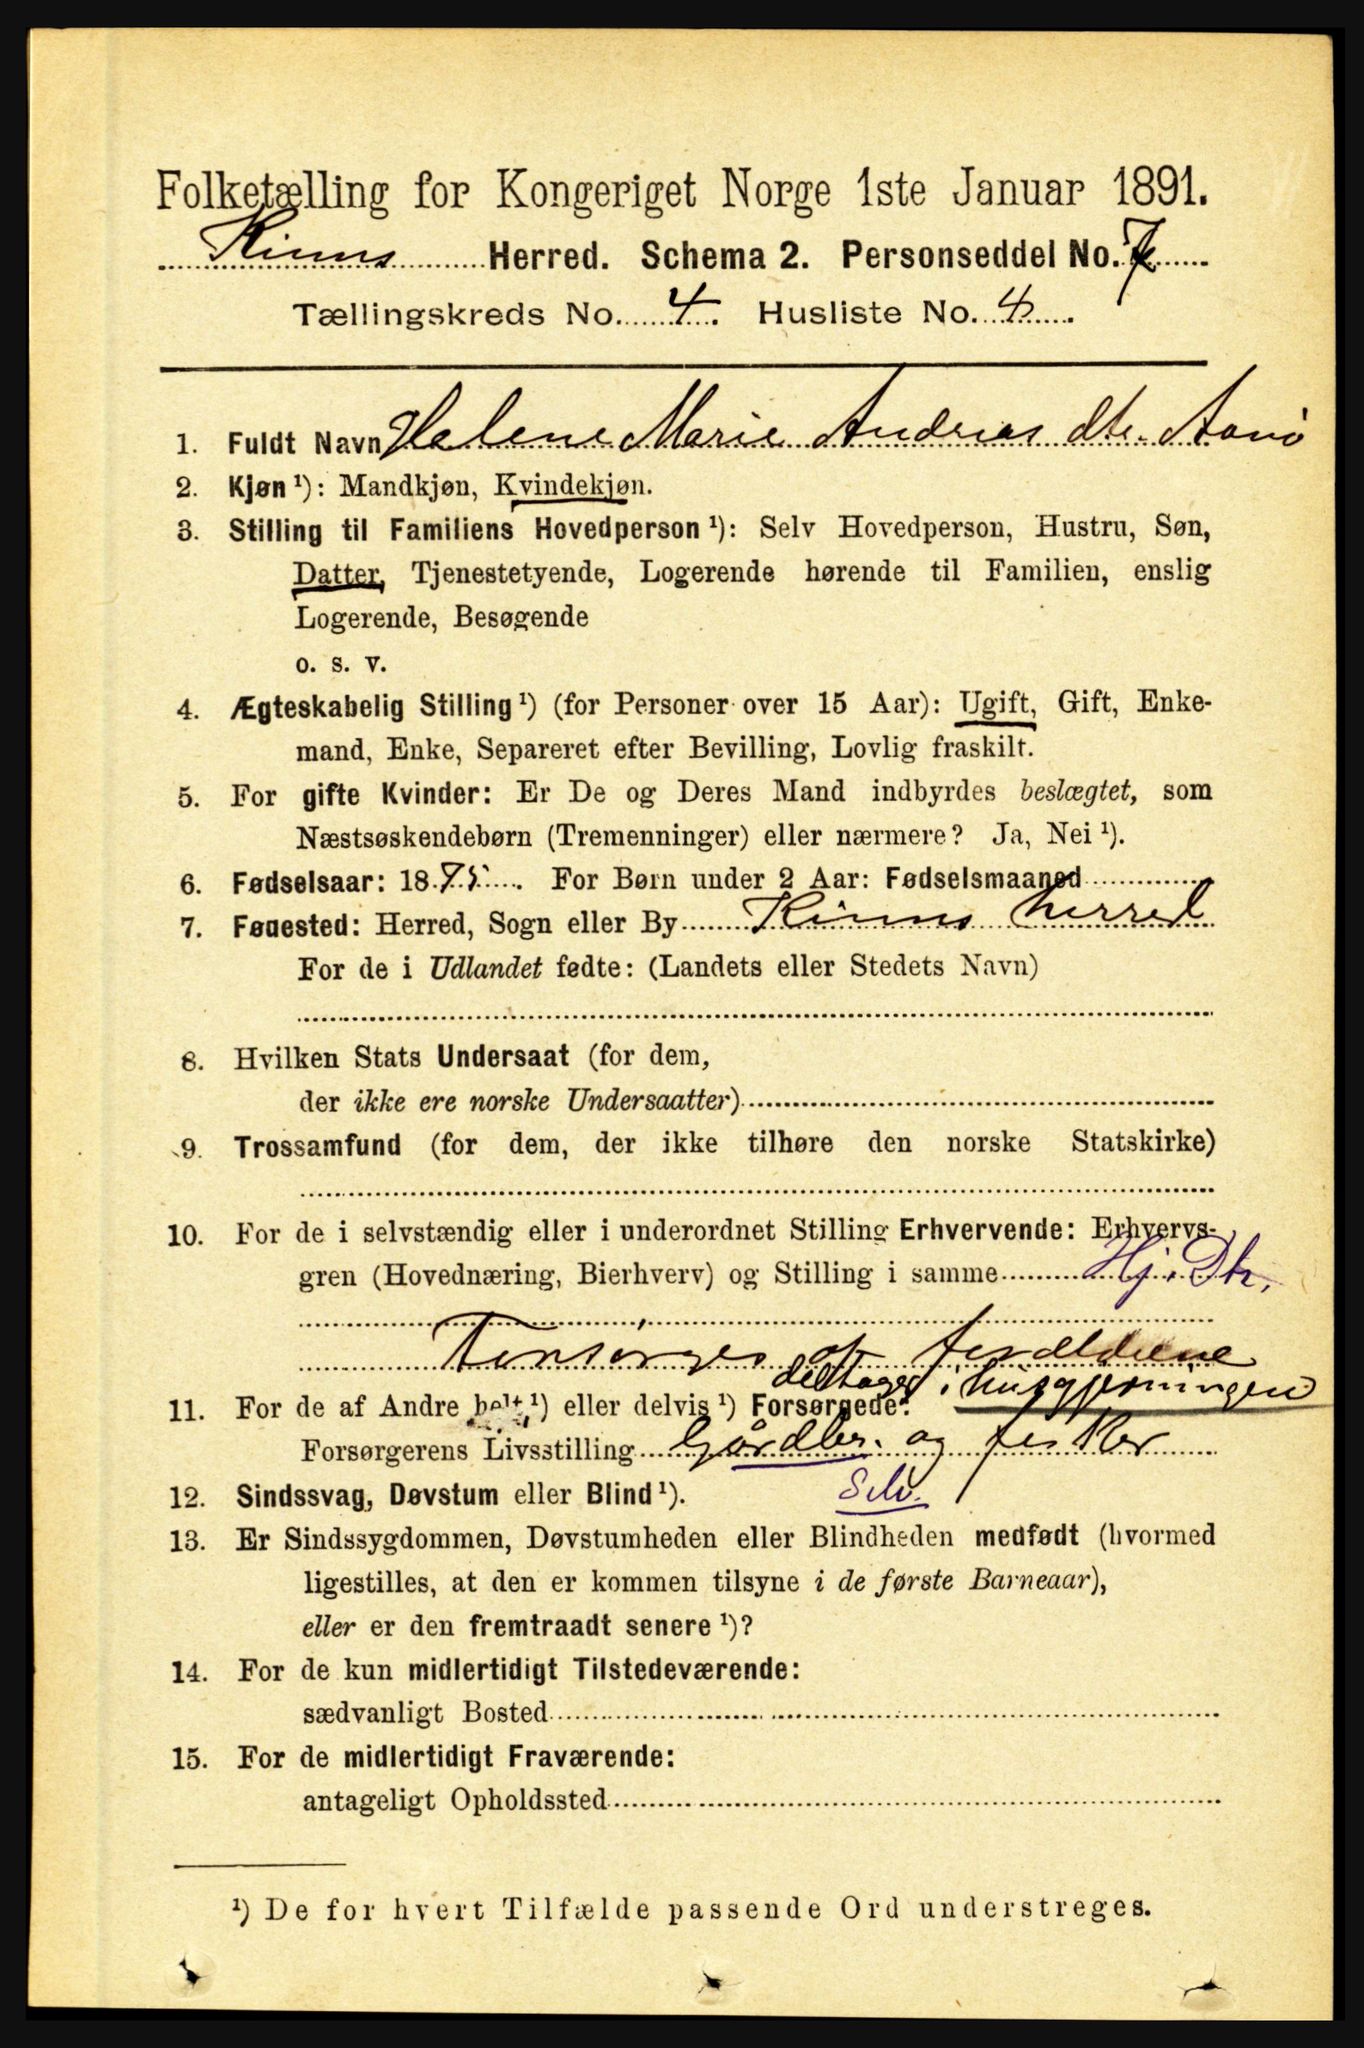 Folketælling for Kongeriget Norge 1ste Januar 1891.
Kinns Herred. Schema 2. Personseddel No. 7
Tællingskreds No. 4. Husliste No. 4.
1. Fuldt Navn Helene Marie Andreas dtr.
2. Kjøn ¹): Mandkjøn, Kvindekjøn.
3. Stilling til Familiens Hovedperson ¹): Selv Hovedperson, Hustru, Søn,
Datter, Tjenestetyende, Logerende hørende til Familien, enslig
Logerende, Besøgende
o. s. v.
4. Ægteskabelig Stilling ¹) (for Personer over 15 Aar): Ugift, Gift, Enke-
mand, Enke, Separeret efter Bevilling, Lovlig fraskilt.
5. For gifte Kvinder: Er De og Deres Mand indbyrdes beslægtet, som
Næstsøskendebørn (Tremenninger) eller nærmere? Ja, Nei ¹).
6. Fødselsaar: 1875. For Børn under 2 Aar: Fødselsmaaned
7. Fødested: Herred, Sogn eller By Kinns herred
For de i Udlandet fødte: (Landets eller Stedets Navn)
8. Hvilken Stats Undersaat (for dem,
der ikke ere norske Undersaatter)
9. Trossamfund (for dem, der ikke tilhøre den norske Statskirke)
10. For de i selvstændig eller i underordnet Stilling Erhvervende: Erhvervs-
gren (Hovednæring, Bierhverv) og Stilling i samme Hj. Dtr.
Forsørges af forældrene
deltager i husgjerningen
11. For de af Andre helt ¹) eller delvis ¹) Forsørgede:
Forsørgerens Livsstilling Gårdbr. og fisker
Selv.
12. Sindssvag, Døvstum eller Blind ¹).
13. Er Sindssygdommen, Døvstumheden eller Blindheden medfødt (hvormed
ligestilles, at den er kommen tilsyne i de første Barneaar),
eller er den fremtraadt senere ¹)?
14. For de kun midlertidigt Tilstedeværende:
sædvanligt Bosted
15. For de midlertidigt Fraværende:
antageligt Opholdssted
¹) De for hvert Tilfælde passende Ord understreges.